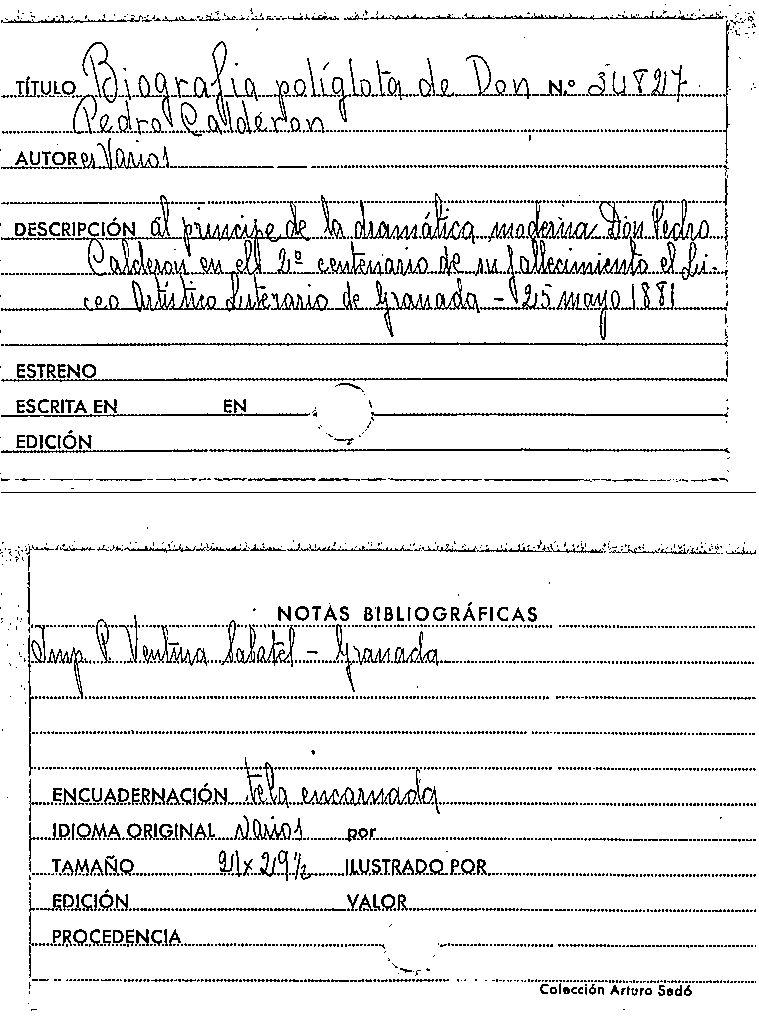 TÍTULO Biografia políglota de Don N.º 34827
Pedro Calderon
AUTORes Varios
DESCRIPCIÓN al principe de la dramática moderna Don Pedro
Calderon en el 2º centenario de su fallecimiento el Li-
ceo Artístico Literario de Granada - 25 mayo 1881
ESTRENO
ESCRITA EN EN
EDICIÓN
NOTAS BIBLIOGRÁFICAS
Imp P. Ventura Sabatel - Granada
ENCUADERNACIÓN tela encarnada
IDIOMA ORIGINAL Varios por
TAMAÑO 21 x 29½ ILUSTRADO POR
EDICIÓN VALOR
PROCEDENCIA
Colección Arturo Sedó